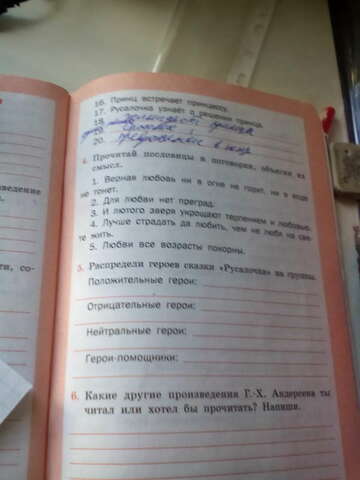 16. Принц встречает принцессу.
17. Русалочка узнаёт о решении принца.
18.
19.
20. в пену
4. Прочитай пословицы и поговорки, объясни их
смысл.
1. Верная любовь ни в огне не горит, ни в воде
не тонет.
2. Для любви нет преград.
3. И лютого зверя укрощают терпением и любовью.
4. Лучше страдать да любить, чем не любя на све-
те жить.
5. Любви все возрасты покорны.
5. Распредели героев сказки «Русалочка» на группы.
Положительные герои:
Отрицательные герои:
Нейтральные герои:
Герои-помощники:
6. Какие другие произведения Г.-Х. Андерсена ты
читал или хотел бы прочитать? Напиши.
ведение
ти, со-